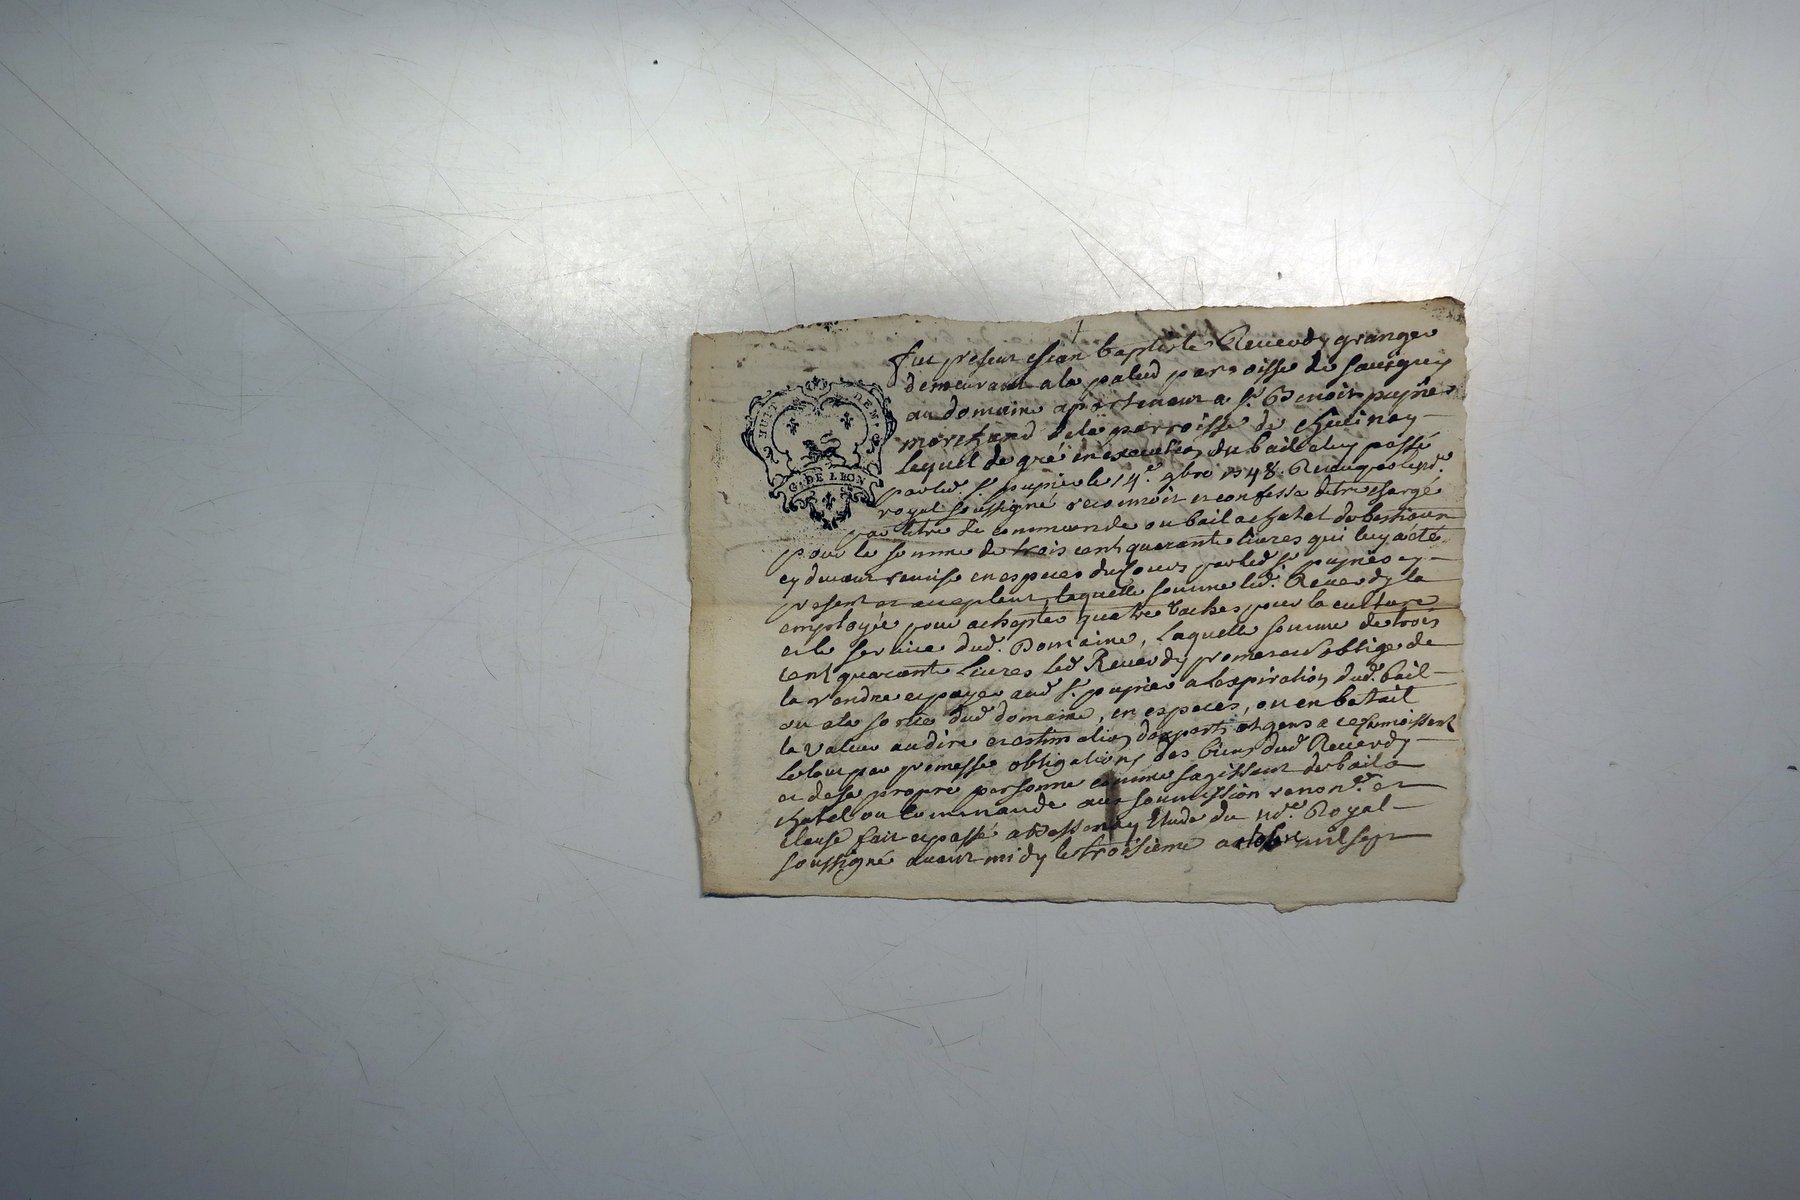 HUIT DEN.
G. DE LEON
fut présent Jean baptiste Reverdy granger
demeurant a la palud parroisse de Savigny
au domaine apartenant a Sr. Benoit pupier
marchand de la parroisse de
lequel de gré en execution du bail a luy passé
par led. Sr. pupier le 14e. 9bre 1748. Receu par le nre.
royal soussigné reconnoit et confesse detre chargé
par titre de commande ou bail a chatel de bestiaux
pour la somme de trois cent quarante livres qui luy a été
cy devant remise en especes du cours par led. Sr. pupier cy
present et acceptant, laquelle somme led. Reverdy la
employée pour achepter quatre vaches pour la culture
et le service dud. Domaine, laquelle somme de trois
cent quarante livres led. Reverdy promet et soblige de
la rendre et payer aud. Sr. pupier a lexpiration dud. bail
ou a la sortie dud. domaine, en especes, ou en betail
la valeur au dire et estimation dexperts et gens a ce connoissent
le tout par promesse obligations des biens dud. Reverdy
et de sa propre personne comme sagissant de bail a
chatel ou commande aux soumission renon. et
clause fait et passé a Bessenay Etude du nre. Royal
soussigné avant midy le troisième octobre mil sept